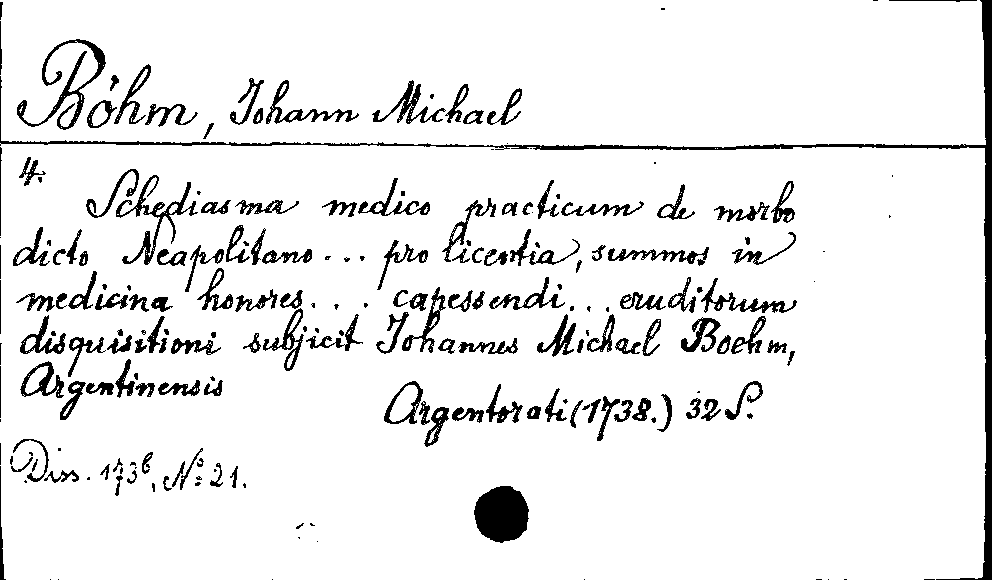 Böhm, Johann Michael
4.
Schediasma medico practicum de morbo
dicto Neapolitano... pro licentia, summos in
medicina honores... capessendi... eruditorum
disquisitioni subjicit Johannes Michael Boehm,
Argentinensis
Argentorati (1738.) 32 S.
Diss. 173⁶, No: 21.